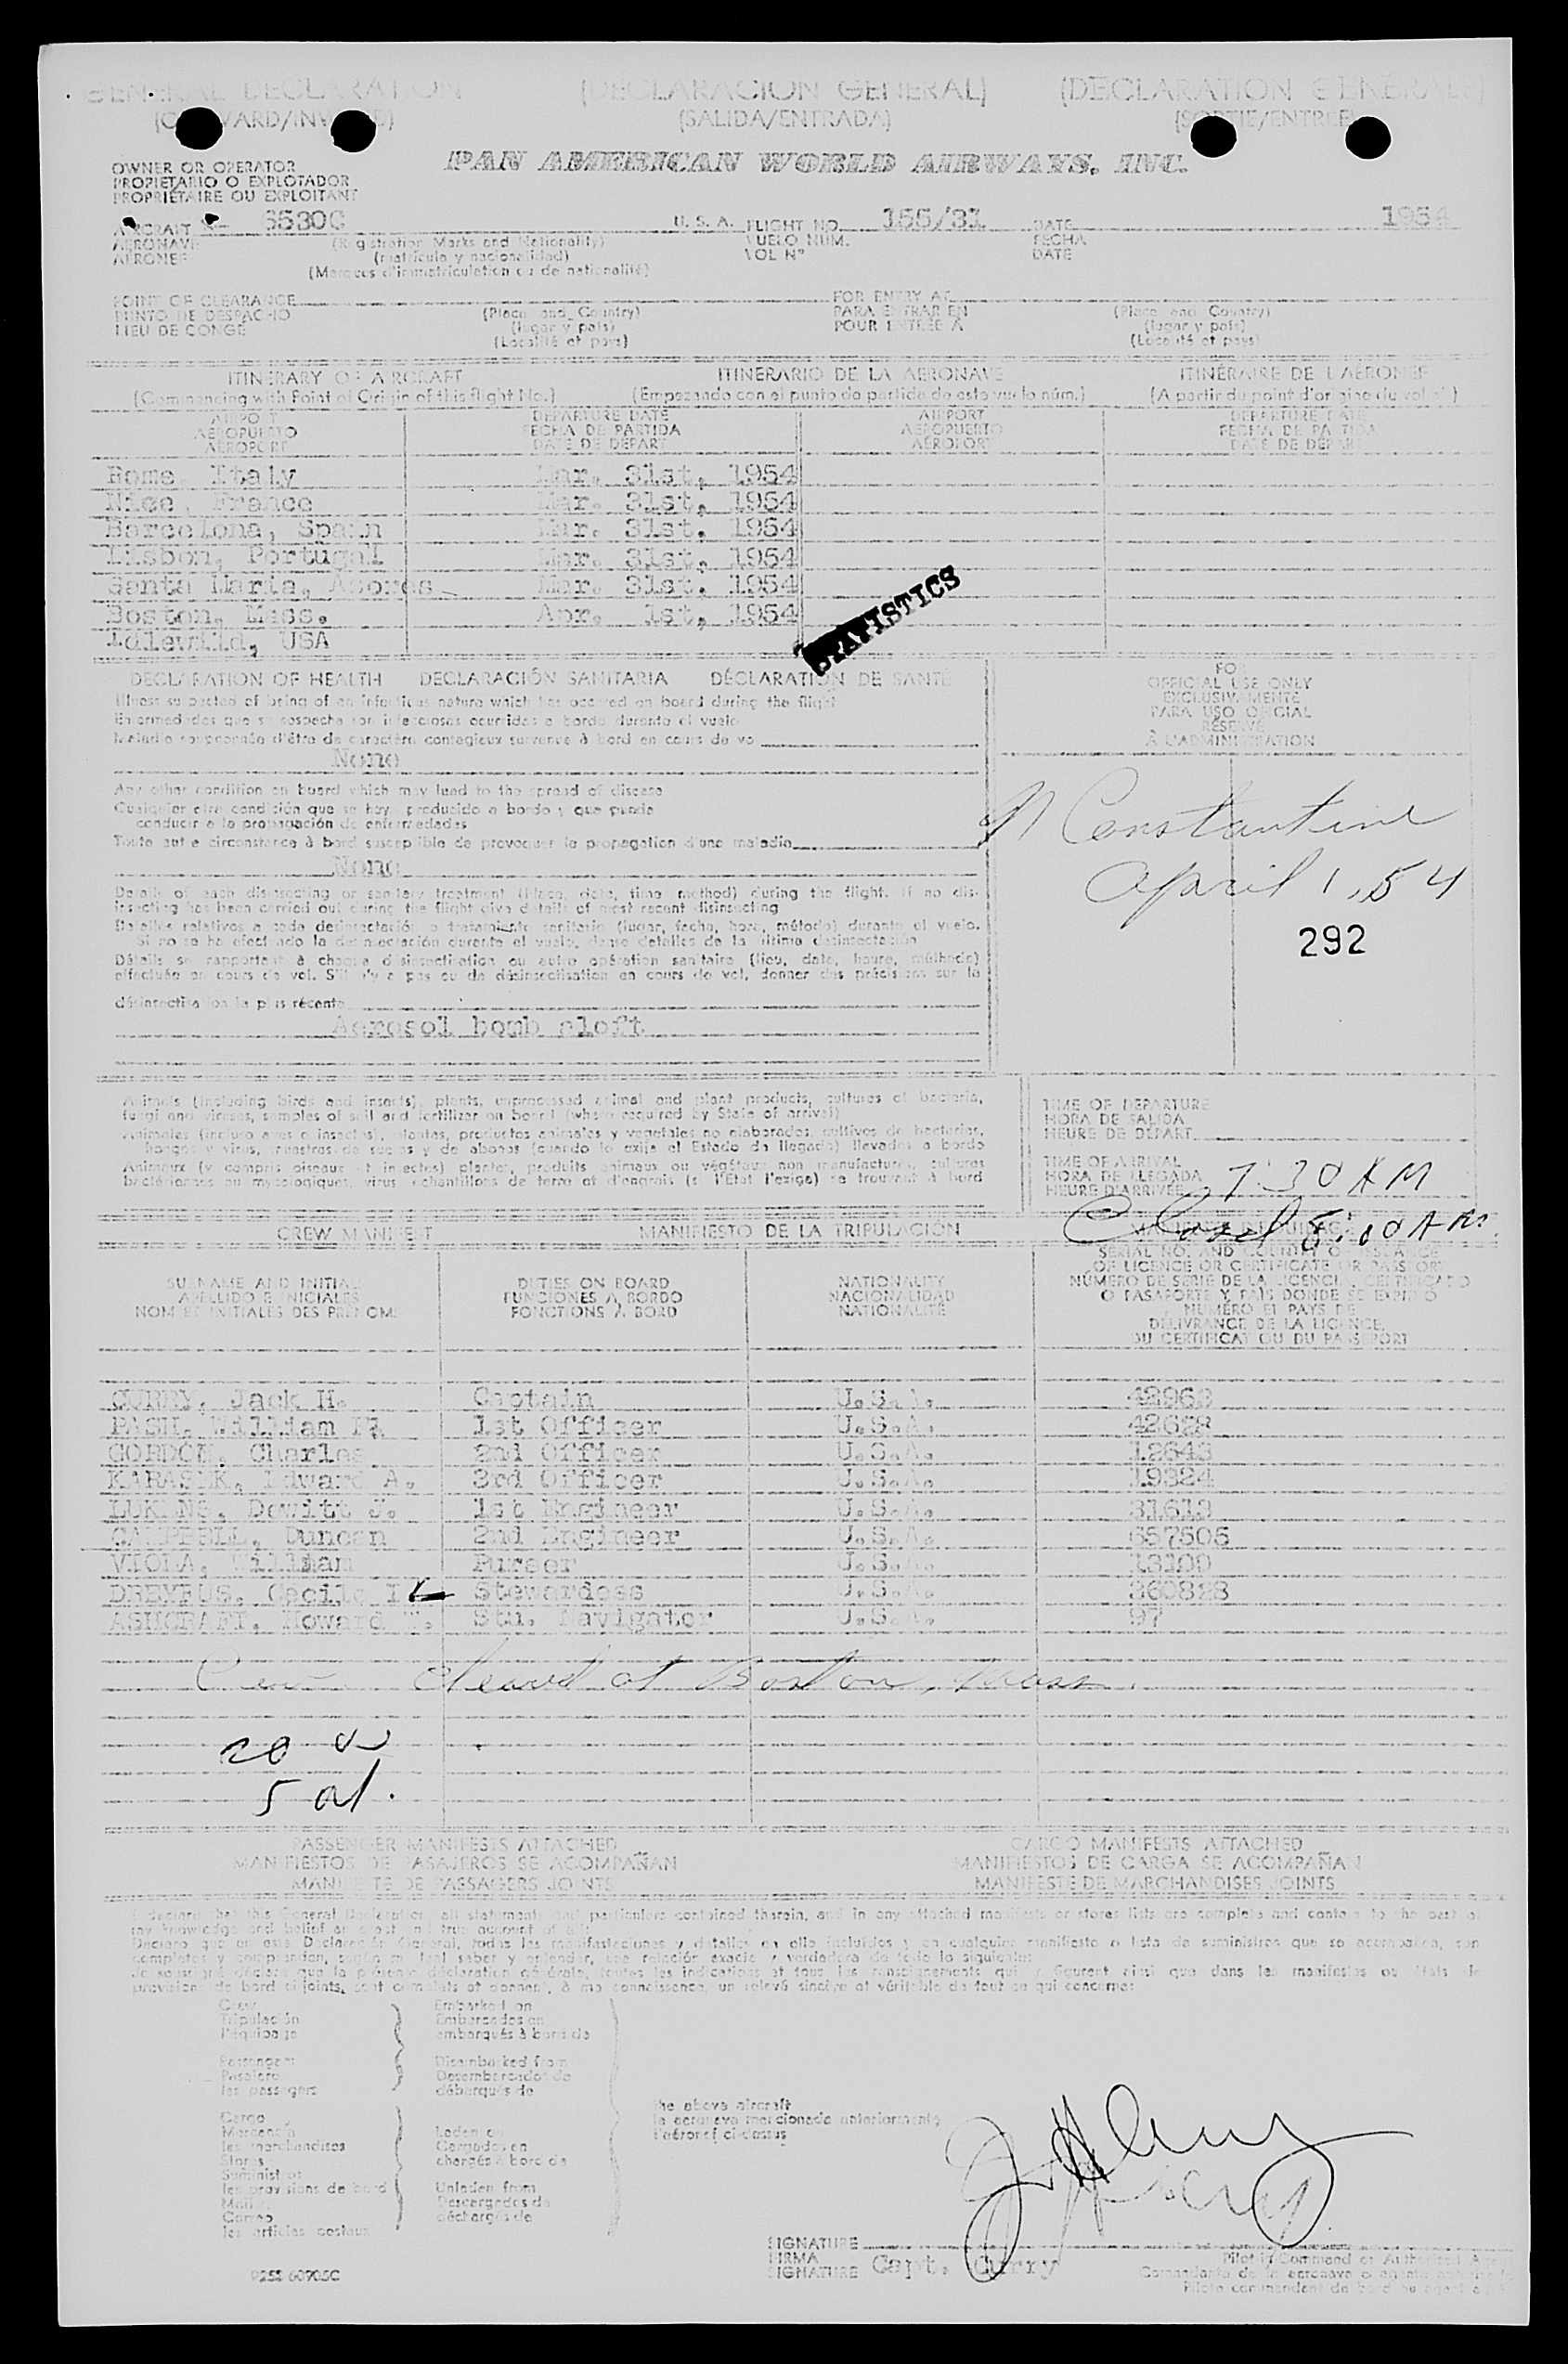 GENERAL DECLARATION (DECLARACION GENERAL) (DECLARATION GENERALE)
(SALIDA/ENTRADA) (SORTIE/ENTREE)
OWNER OR OPERATOR
PROPIETARIO O EXPLOTADOR
PROPRIÉTAIRE OU EXPLOITANT
PAN AMERICAN WORLD AIRWAYS, INC.
AIRCRAFT U. S. A. FLIGHT NO. 155/31 DATE 1954
AERONAVE (Registration Marks and Nationality) VUELO NÚM. FECHA
AÉRONEF (matrícula y nacionalidad) VOL Nº DATE
(Marques d'immatriculation ou de nationalité)
POINT OF CLEARANCE FOR ENTRY AT
PUNTO DE DESPACHO (Place and Country) PARA ENTRAR EN (Place and Country)
LIEU DE CONGÉ (lugar y país) POUR ENTRÉE A (lugar y país)
(Localité et pays) (Localité et pays)
ITINERARY OF AIRCRAFT ITINERARIO DE LA AERONAVE ITINÉRAIRE DE L'AÉRONEF
(Commencing with Point of Origin of this flight No.) (Empezando con el punto de partida de este vuelo núm.) (A partir du point d'origine du vol nº)
AIRPORT DEPARTURE DATE AIRPORT DEPARTURE DATE
AEROPUERTO FECHA DE PARTIDA AEROPUERTO FECHA DE PARTIDA
AÉROPORT DATE DE DÉPART AÉROPORT DATE DE DÉPART
Rome, Italy Mar. 31st, 1954
Nice, France Mar. 31st, 1954
Barcelona, Spain Mar. 31st, 1954
Lisbon, Portugal Mar. 31st, 1954
Santa Maria, Azores Mar. 31st, 1954
Boston, Mass. Apr. 1st, 1954
Idlewild, USA
STATISTICS
DECLARATION OF HEALTH DECLARACIÓN SANITARIA DÉCLARATION DE SANTE
FOR
OFFICIAL USE ONLY
EXCLUSIVAMENTE
PARA USO OFICIAL
RÉSERVÉ
À L'ADMINISTRATION
Illness suspected of being of an infectious nature which has occurred on board during the flight
Enfermedades que se sospecha son infecciosas ocurridas a bordo durante el vuelo
Maladie soupçonnée d'être de caractère contagieux survenue à bord en cours de vol
None
Any other condition on board which may lead to the spread of disease
Cualquier otra condición que se haya producido a bordo y que pueda
conducir a la propagación de enfermedades
Toute autre circonstance à bord susceptible de provoquer la propagation d'une maladie
None
Constantine
April 1, 54
292
Details of each disinsecting or sanitary treatment (place, date, time method) during the flight. If no dis-
insecting has been carried out during the flight give details of most recent disinsecting
Detalles relativos a toda desinsectación o tratamiento sanitario (lugar, fecha, hora, método) durante el vuelo.
Si no se ha efectuado la desinsectación durante el vuelo, dense detalles de la última desinsectación
Détails se rapportant à chaque désinsectisation ou autre opération sanitaire (lieu, date, heure, méthode)
effectuée en cours de vol. S'il n'y a pas eu de désinsectisation en cours de vol, donner des précisions sur la
désinsectisation la plus récente
Aerosol bomb aloft
Animals (including birds and insects), plants, unprocessed animal and plant products, cultures of bacteria,
fungi and viruses, samples of soil and fertilizer on board (where required by State of arrival)
Animales (incluso aves e insectos), plantas, productos animales y vegetales no elaborados, cultivos de bacterias,
hongos y virus, muestras de suelos y de abonos (cuando lo exija el Estado de llegada) llevados a bordo
Animaux (y compris oiseaux et insectes) plantes, produits animaux ou végétaux non manufacturés, cultures
bactériennes ou mycologiques, virus, échantillons de terre et d'engrais (si l'Etat l'exige) se trouvant à bord
TIME OF DEPARTURE
HORA DE SALIDA
HEURE DE DÉPART
TIME OF ARRIVAL
HORA DE LLEGADA
HEURE D'ARRIVÉE 7:30 AM
Closed 8:00 AM
CREW MANIFEST MANIFIESTO DE LA TRIPULACIÓN
SURNAME AND INITIALS DUTIES ON BOARD NATIONALITY
APELLIDO E INICIALES FUNCIONES A BORDO NACIONALIDAD
NOM ET INITIALES DES PRENOMS FONCTIONS À BORD NATIONALITÉ
SERIAL NO. AND COUNTRY OF ISSUANCE
OF LICENCE OR CERTIFICATE OR PASSPORT
NÚMERO DE SERIE DE LA LICENCIA, CERTIFICADO
O PASAPORTE Y PAÍS DONDE SE EXPIDIÓ
NUMÉRO ET PAYS DE
DÉLIVRANCE DE LA LICENCE,
DU CERTIFICAT OU DU PASSEPORT
CURRY, Jack H. Captain U.S.A.
PASH, William 1st Officer U.S.A. 42628
GORDON, Charles 2nd Officer U.S.A.
KARASEK, Edward A. 3rd Officer U.S.A. 19324
LUKENS, Dewitt J. 1st Engineer U.S.A. 31613
CAMPBELL, Duncan 2nd Engineer U.S.A. 657505
VIOLA, William Purser U.S.A. 13109
DREYFUS, Cecile I. Stewardess U.S.A.
ASHCRAFT, Howard T. Stu. Navigator U.S.A. 97
Crew cleared at Boston, Mass.
5 al.
PASSENGER MANIFESTS ATTACHED CARGO MANIFESTS ATTACHED
MANIFIESTOS DE PASAJEROS SE ACOMPAÑAN MANIFIESTOS DE CARGA SE ACOMPAÑAN
MANIFESTE DE PASSAGERS JOINTS MANIFESTE DE MARCHANDISES JOINTS
I declare that this General Declaration, all statements and particulars contained therein, and in any attached manifests or stores lists are complete and contain to the best of
my knowledge and belief an exact and true account of all:
Crew
Tripulación
l'équipage
Passengers
Pasajeros
les passagers
Cargo
Mercancía
les marchandises
Stores
Suministros
les provisions de bord
Mail
Correo
les articles postaux
Embarked on
Embarcados en
embarqués à bord de
Disembarked from
Desembarcados de
débarqués de
Laden on
Cargados en
chargés à bord de
Unladen from
Descargados de
déchargés de
the above aircraft
la aeronave mencionada anteriormente
l'aéronef ci-dessus
SIGNATURE
FIRMA
SIGNATURE Capt. Curry
Pilot in Command or Authorized Agent